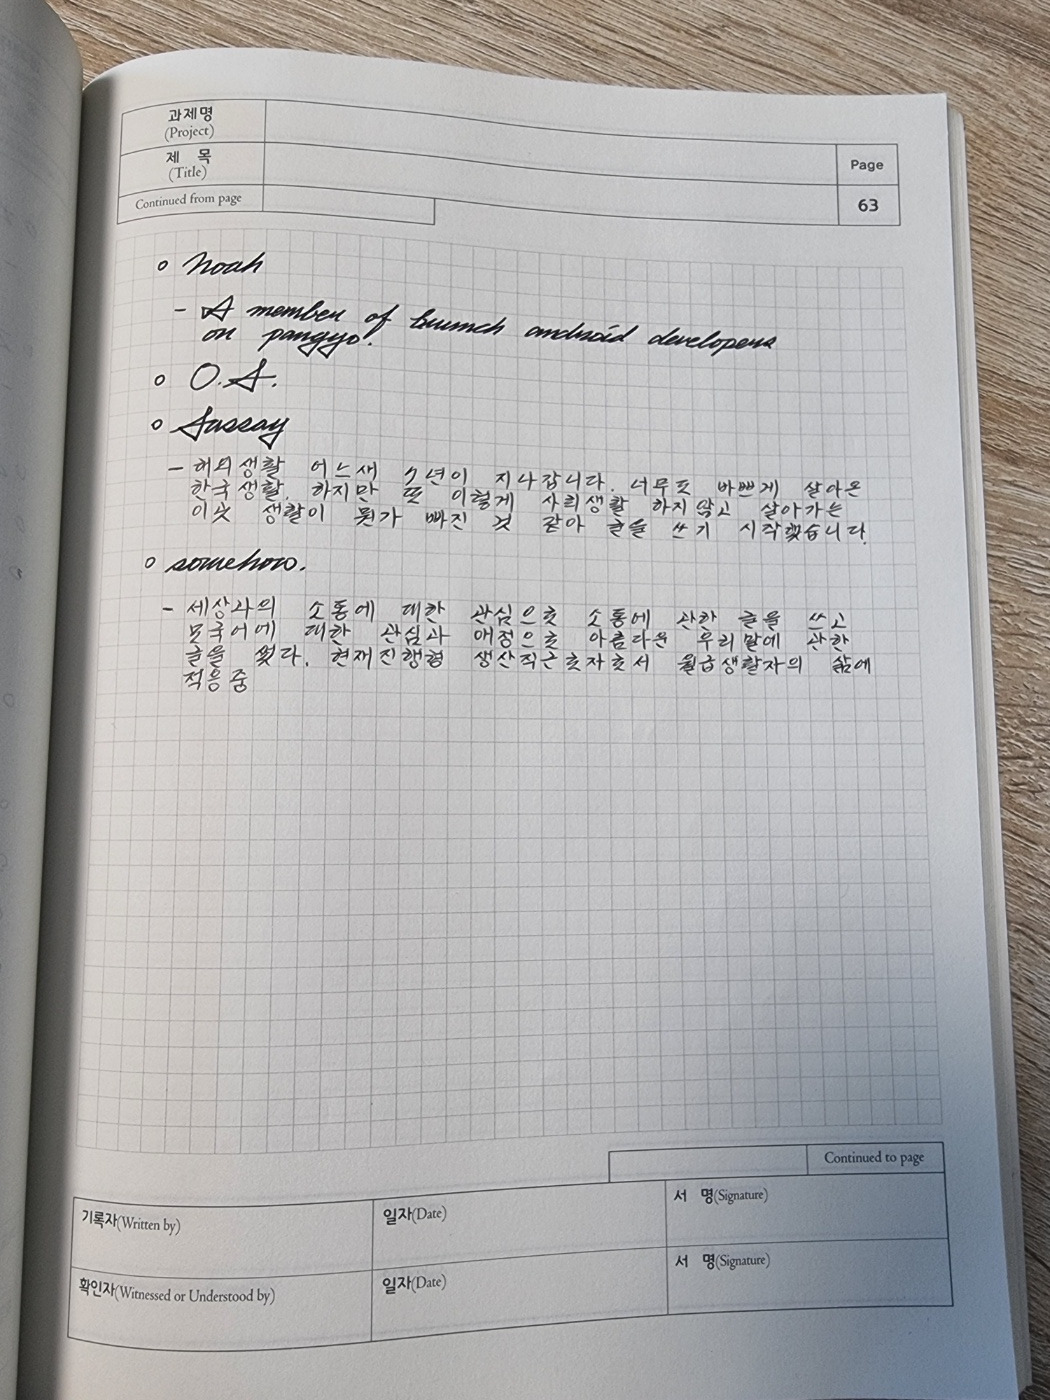 과제명
(Project)
제 목
(Title)
Page
Continued from page
63
o Noah
- A member of brunch android developers
on pangyo.
o O.A.
o Sassay
- 해외생활 어느새 7년이 지나갑니다. 너무도 바쁘게 살아온
한국생활. 하지만 또 이렇게 사회생활 하지 않고 살아가는
이곳 생활이 뭔가 빠진 것 같아 글을 쓰기 시작했습니다.
o somehow.
- 세상과의 소통에 대한 관심으로 소통에 관한 글을 쓰고
모국어에 대한 관심과 애정으로 아름다운 우리말에 관한
글을 썼다. 현재진행형 생산직근로자로서 월급생활자의 삶에
적응 중
Continued to page
기록자(Written by)
일자(Date)
서 명(Signature)
확인자(Witnessed or Understood by)
일자(Date)
서 명(Signature)